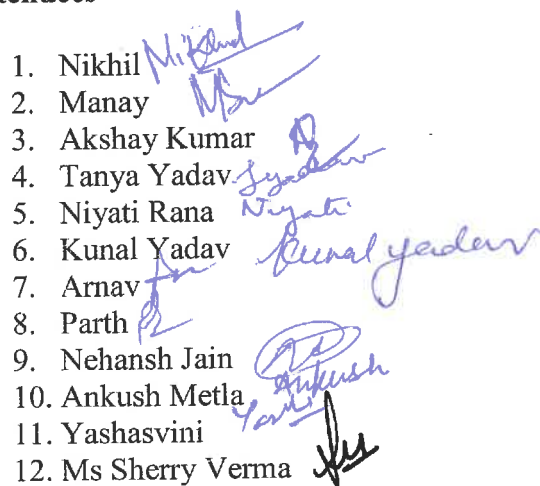 1. Nikhil Nikhil
2. Manay
3. Akshay Kumar
4. Tanya Yadav Tyadav
5. Niyati Rana Niyati
6. Kunal Yadav Kunal yadav
7. Arnav
8. Parth
9. Nehansh Jain
10. Ankush Metla Ankush
11. Yashasvini
12. Ms Sherry Verma